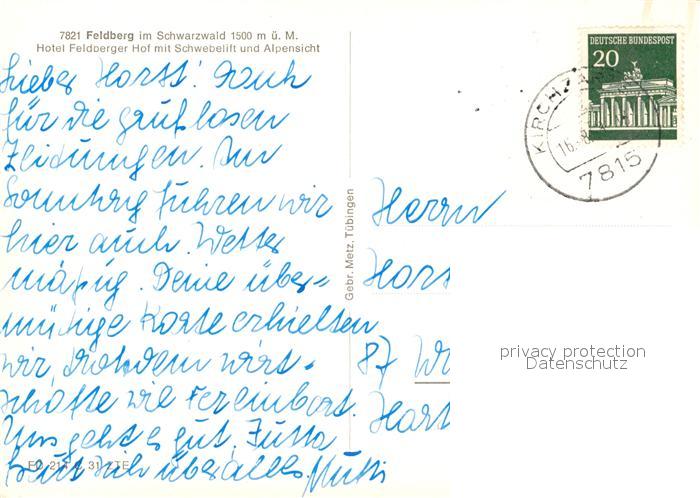 7821 Feldberg im Schwarzwald 1500 m ü. M.
Hotel Feldberger Hof mit Schwebelift und Alpensicht
Lieber Horst! Dank
für die grußlosen
Zeitungen. Am
Sonntag fuhren wir
hier auch. Wetter
mäßig. Deine über=
mütige Karte erhielten
wir, trotzdem wirt-
schafte wie vereinbart.
Uns geht es gut. Jutta
freut sich über alles. Mutti
Gebr. Metz, Tübingen
DEUTSCHE BUNDESPOST
20
KIRCHZARTEN
7815
Herrn
Horst
87 Wü
Hart
privacy protection
Datenschutz